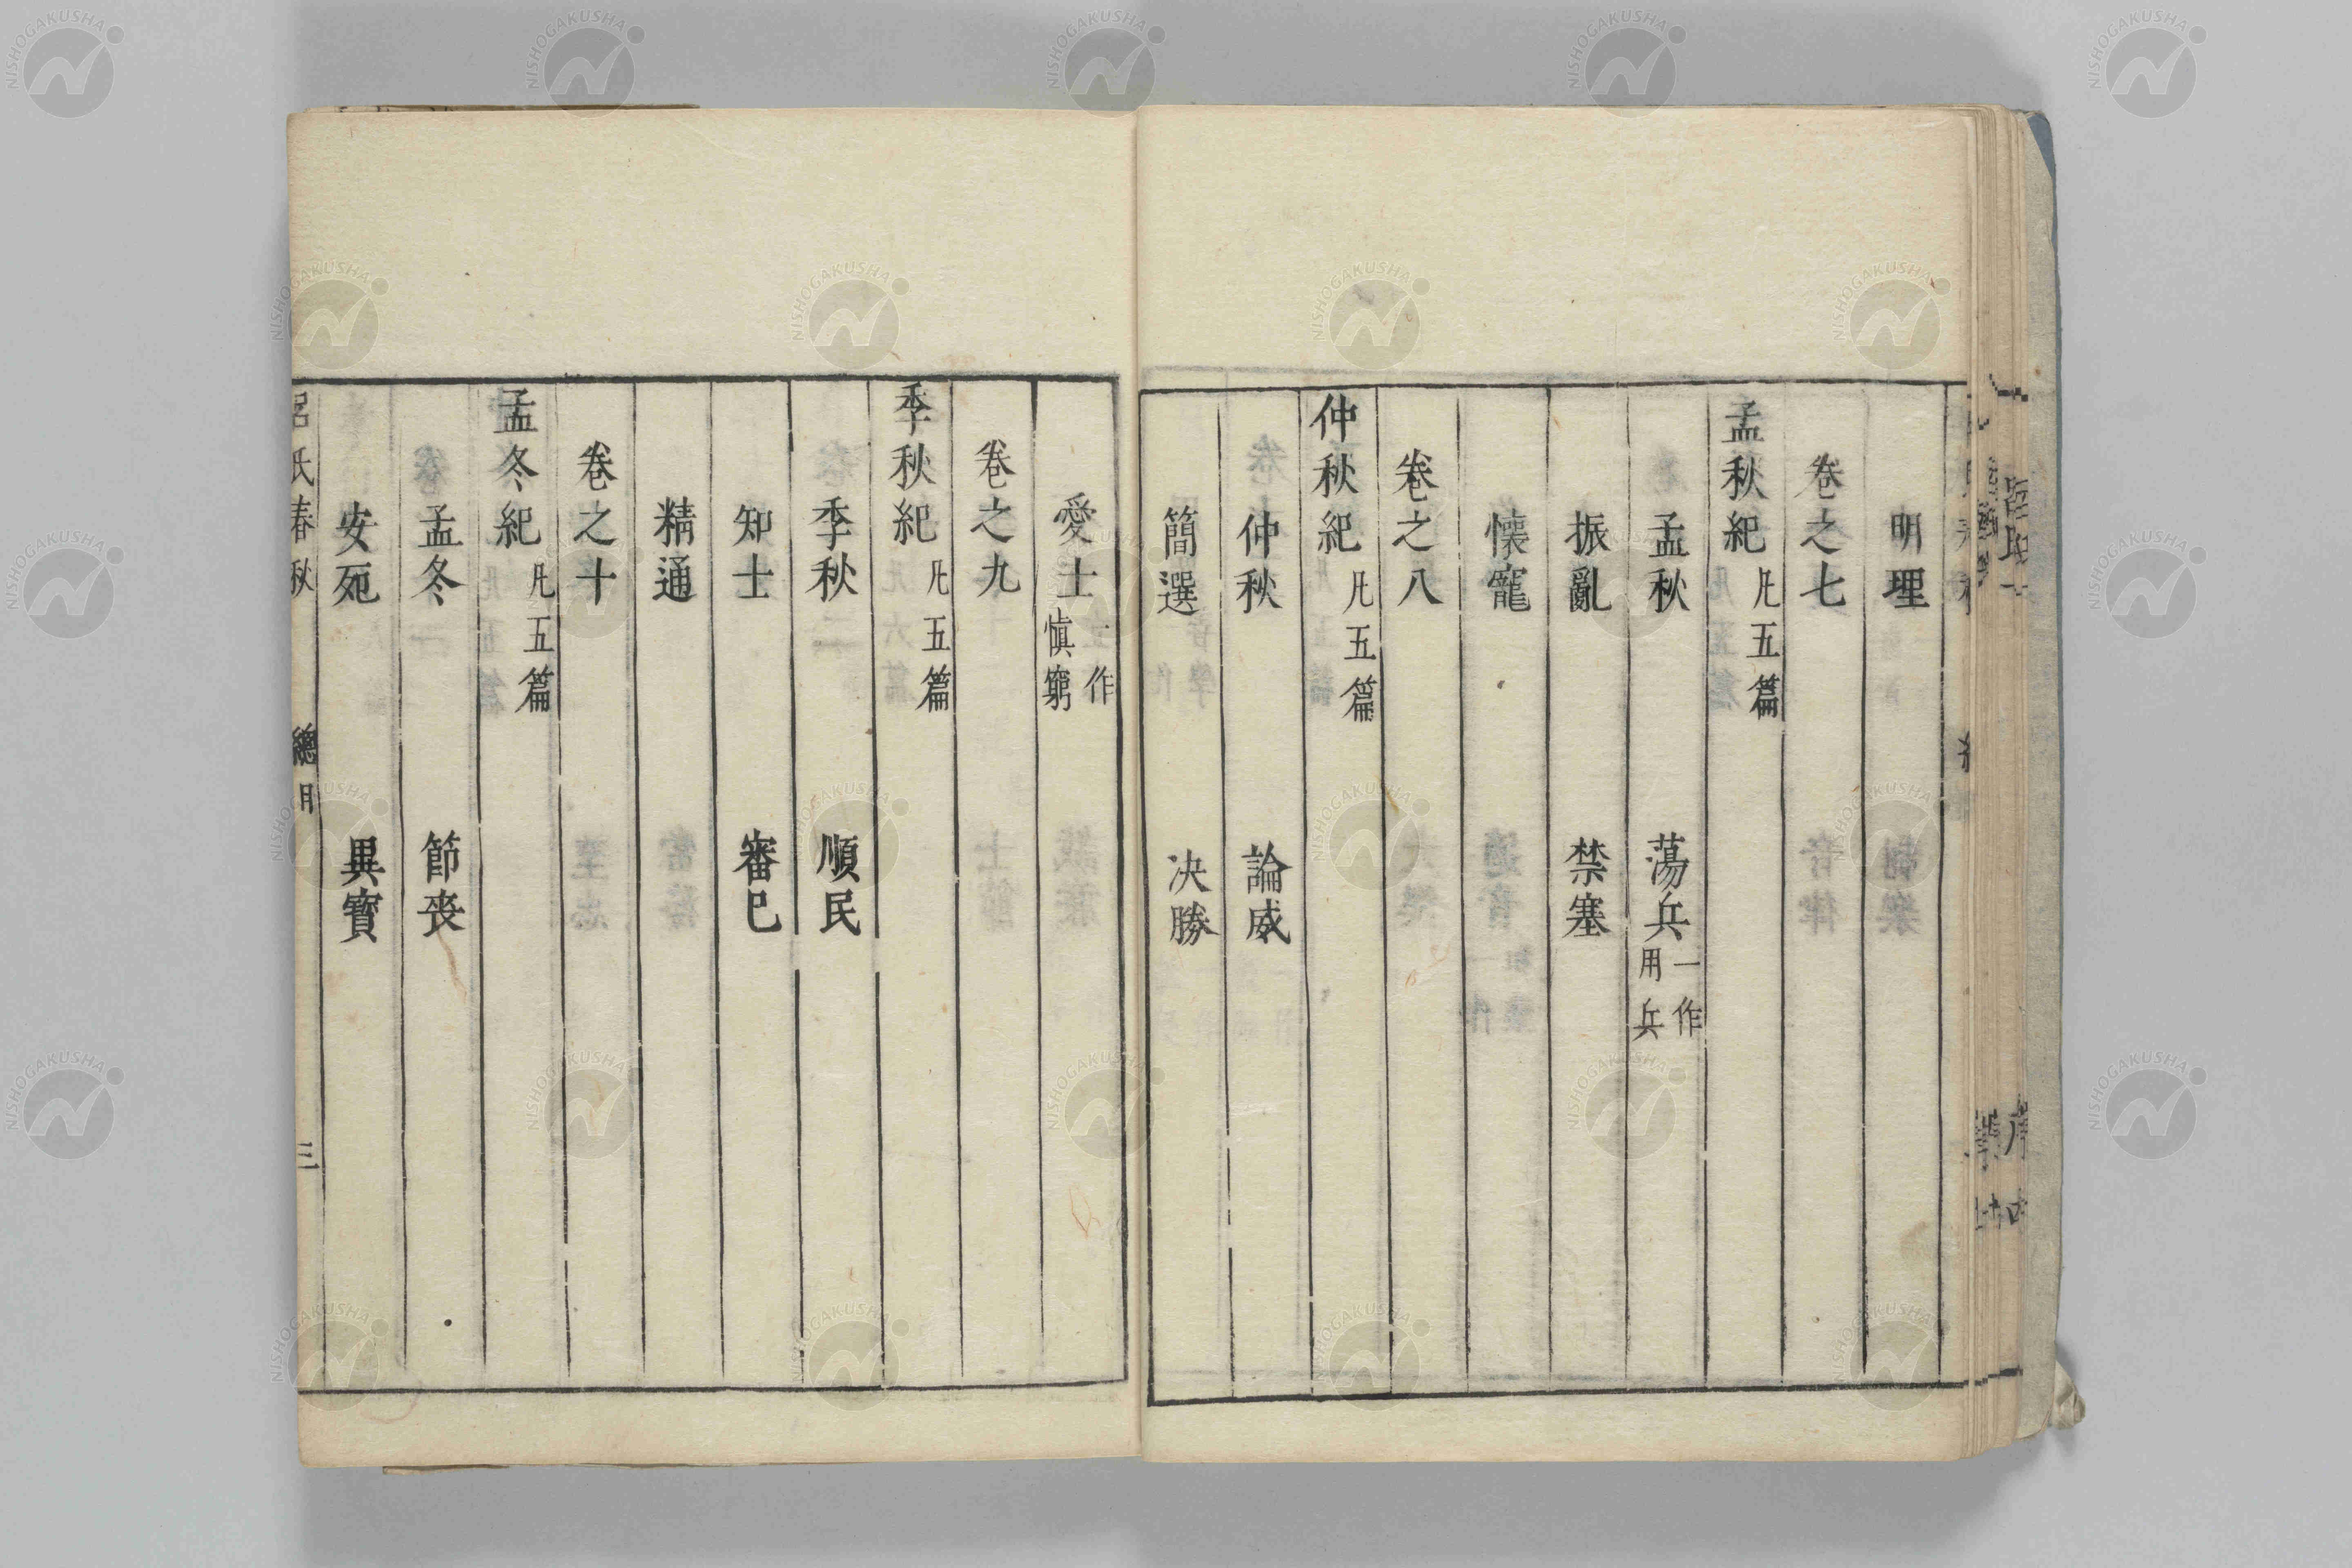 明理
卷之七
孟秋紀凡五篇
孟秋 蕩兵一作用兵
振亂 禁塞
懷寵
卷之八
仲秋紀凡五篇
仲秋 論威
簡選 决勝
愛士一作慎窮
卷之九
季秋紀凡五篇
季秋 順民
知士 審已
精通
卷之十
孟冬紀凡五篇
孟冬 節喪
安死 異寶
呂氏春秋 總目 三
NISHOGAKUSHA